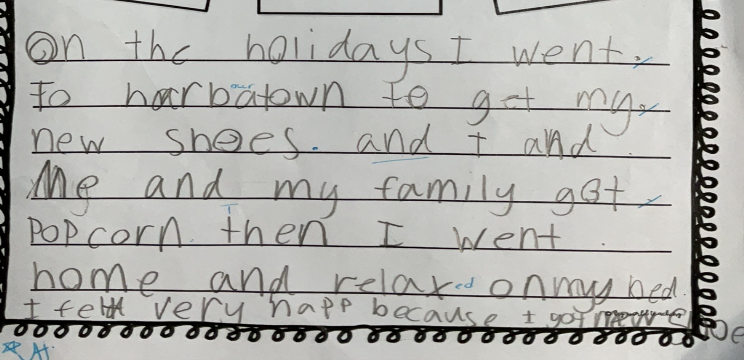 On the holidays I went.
to harbatown to get my.
our
new shoes. and I and
Me and my family got
popcorn. then I went.
T
home and relaxed on my bed.
I felt very happ because I got new shoe